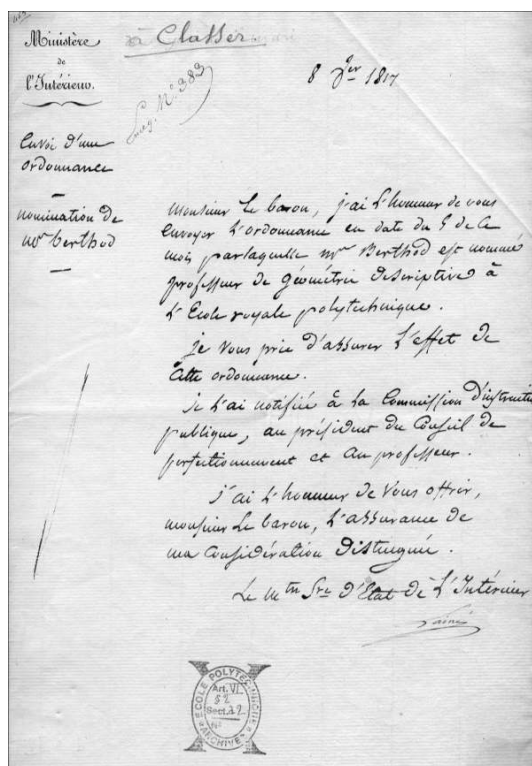 à Classer
Ministère
de
l'Intérieur.
Enreg. N° 383
8 9bre 1817
Envoi d'une
ordonnance
—
nomination de
Mr berthod
—
Monsieur Le baron, j'ai L'honneur de vous
Envoyer L'ordonnance en date du 5 de ce
mois par laquelle Mr Berthod est nommé
professeur de géométrie descriptive à
L'Ecole royale polytechnique.
je vous prie d'assurer L'effet de
cette ordonnance.
je L'ai notifiée à la Commission d'instruction
publique, au président du Conseil de
perfectionnement et au professeur.
J'ai L'honneur de vous offrir,
monsieur Le baron, L'assurance de
ma Considération distinguée.
Le Mtre Sre d'Etat de L'Intérieur
Lainé
ECOLE POLYTECHNIQUE
Art. VI
§ 2
Sect. a 2
N°
ARCHIVES